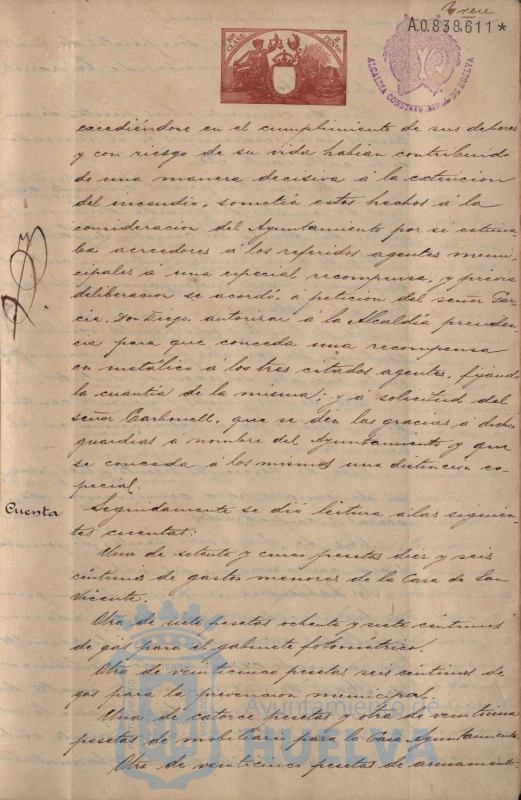 Trece
A.0.838.611*
10ª CLASE 2 PESETAS
ALCALDIA CONSTITUCIONAL DE HUELVA
excediéndose en el cumplimiento de sus deberes
y con riesgo de su vida habian contribuido
de una manera decisiva á la extincion
del incendio, sometia estos hechos á la
consideracion del Ayuntamiento por si estima-
ba acreedores á los referidos agentes muni-
cipales á una especial recompensa, y prévia
deliberacion se acordó, á peticion del señor Gar-
cia, Don Diego, autorizar á la Alcaldía presiden-
cia para que conceda una recompensa
en metálico á los tres citados agentes, fijando
la cuantia de la misma; y á solicitud del
señor Carbonell, que se den las gracias á dichos
guardias á nombre del Ayuntamiento y que
se conceda á los mismos una distincion es-
pecial.
Cuenta
Seguidamente se dió lectura á las siguien-
tes cuentas:
Una de setenta y cinco pesetas diez y seis
céntimos de gastos menores de la Casa de San
Vicente.
Otra de siete pesetas ochenta y siete céntimos
de gas para el gabinete fotométrico.
Otra de veinticinco pesetas seis céntimos de
gas para la prevencion municipal.
Una de catorce pesetas y otra de veintiuna
pesetas de mobiliario para la Casa Ayuntamiento.
Otra de veinticinco pesetas de armamento
Ayuntamiento de
HUELVA